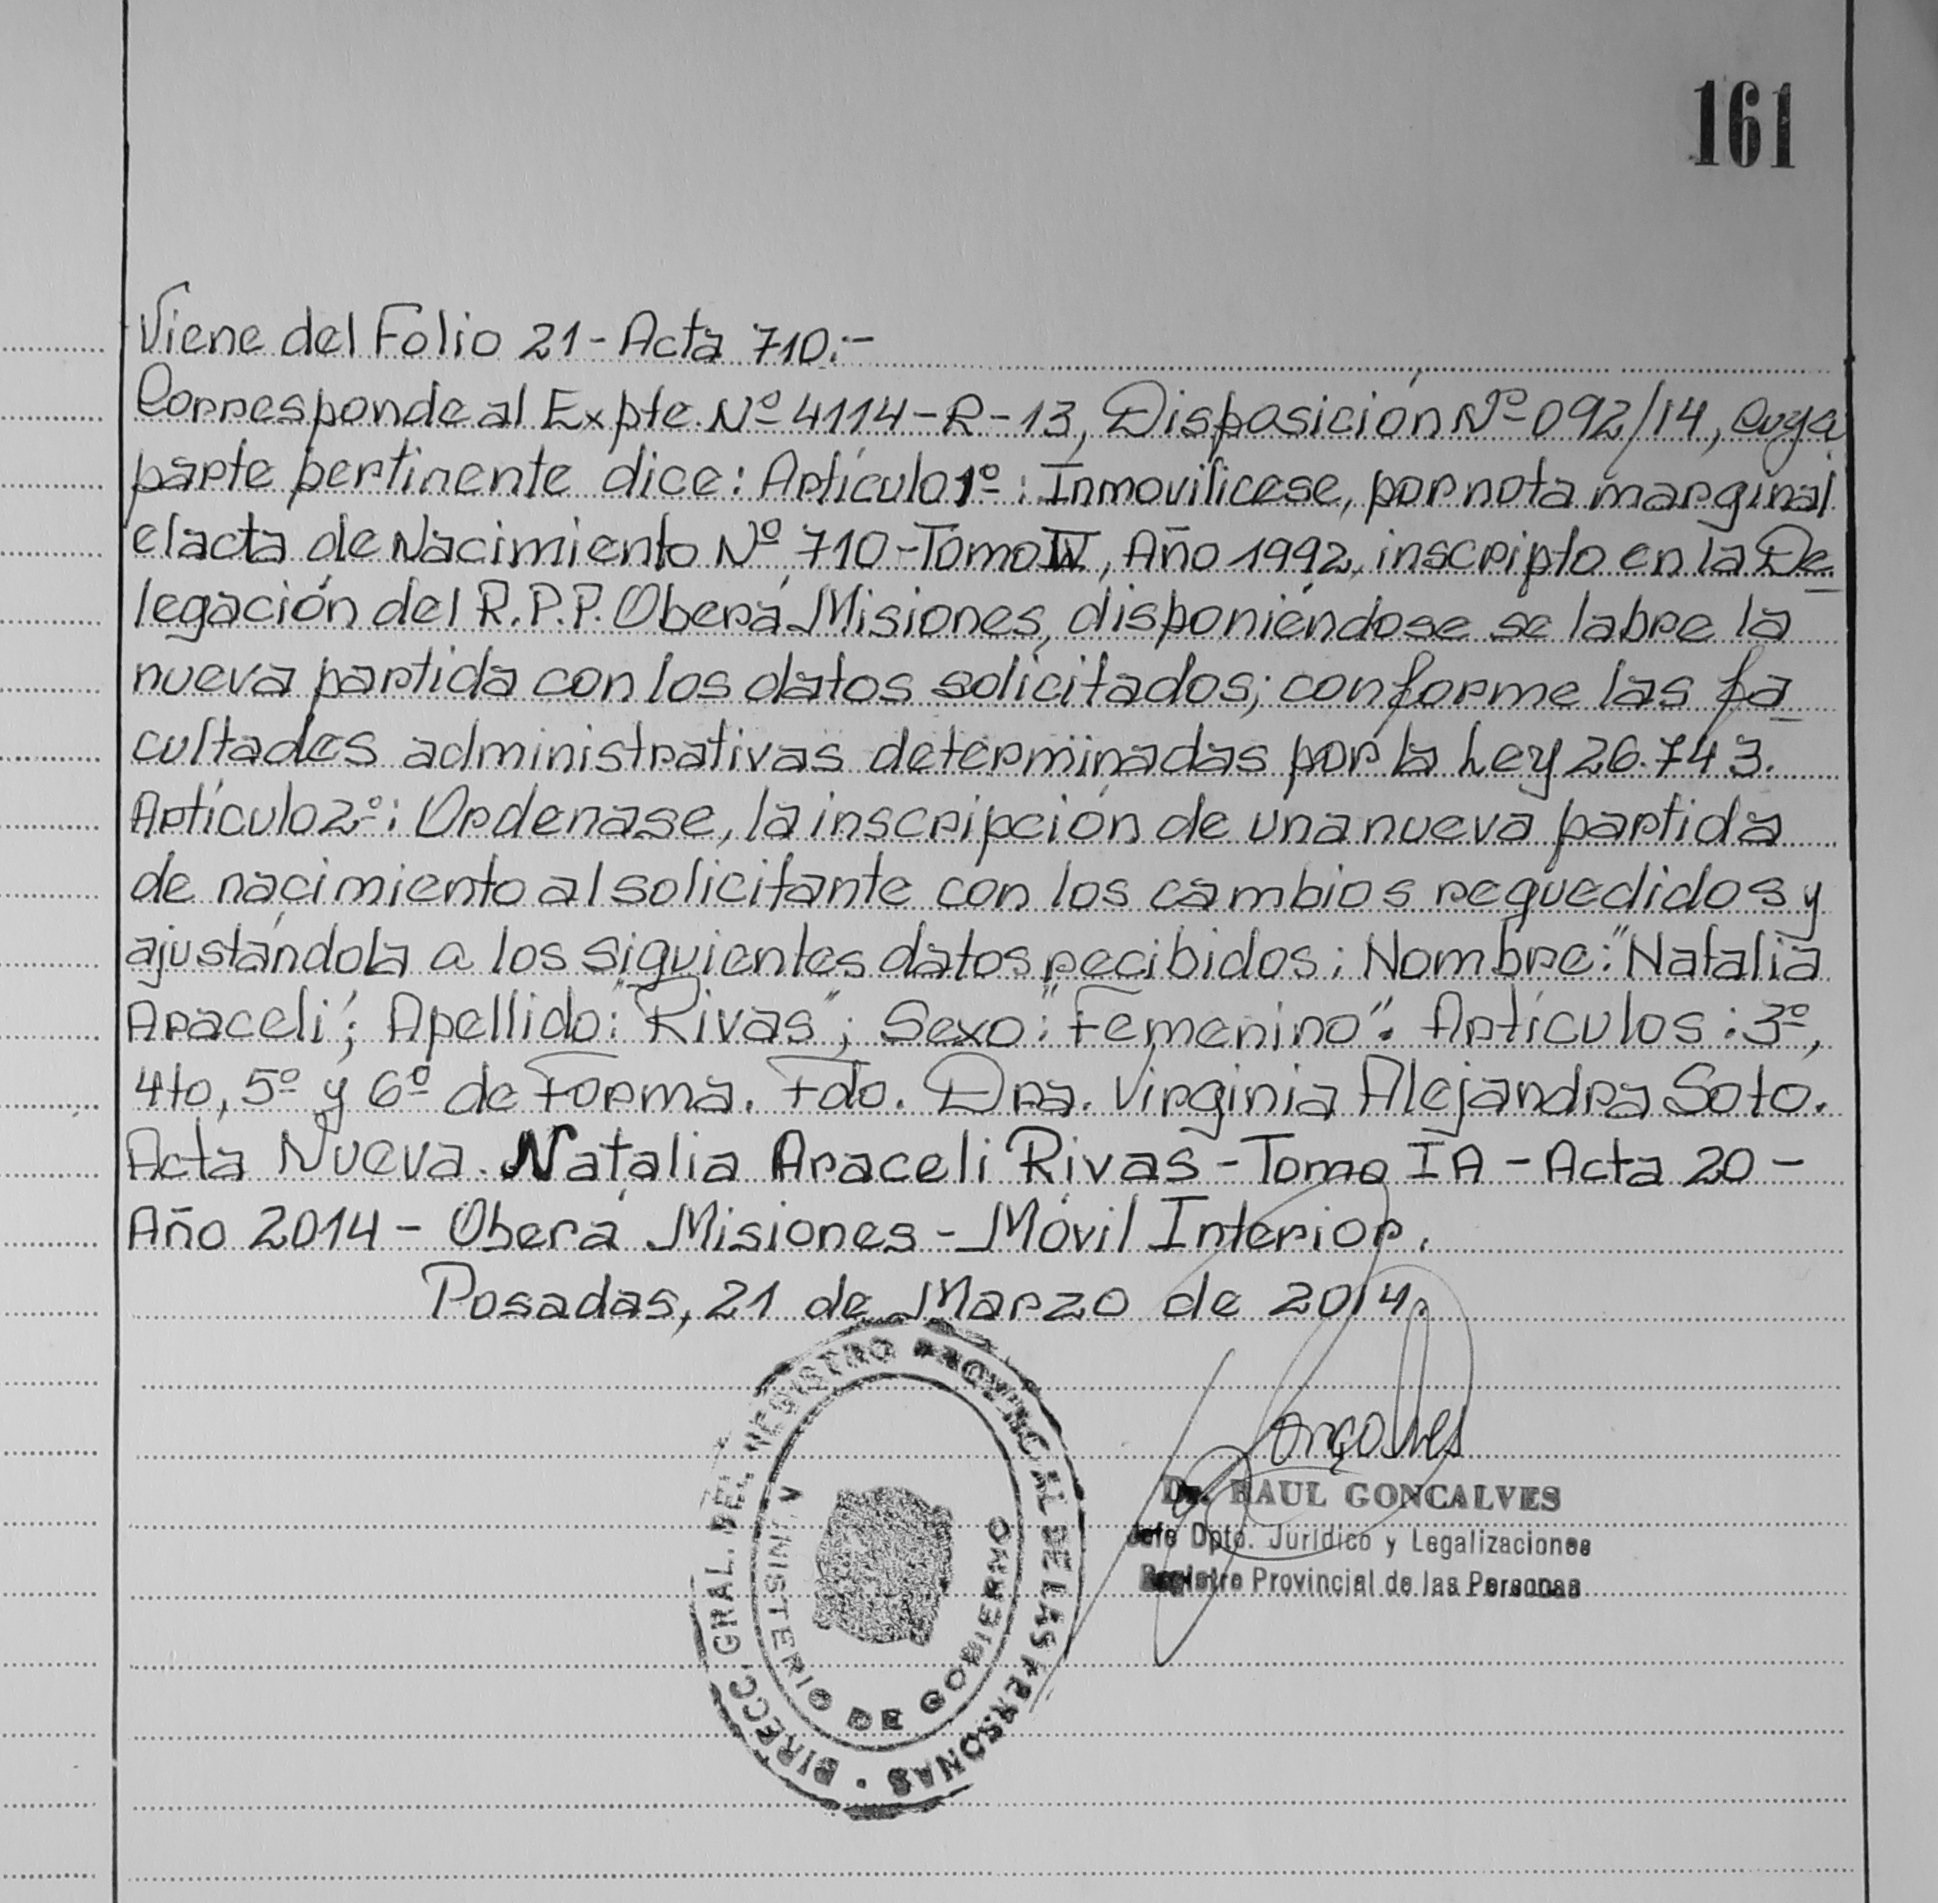 161
Viene del Folio 21 - Acta 710.-
Corresponde al Expte. Nº 4114-R-13, Disposición Nº 092/14, cuya
parte pertinente dice: Artículo 1º: Inmovilicese, por nota marginal
el acta de Nacimiento Nº 710-Tomo IV, Año 1992, inscripto en la De
legación del R.P.P. Oberá Misiones, disponiéndose se labre la
nueva partida con los datos solicitados; conforme las fa
cultades administrativas determinadas por la Ley 26.743.
Artículo 2º: Ordenase, la inscripción de una nueva partida
de nacimiento al solicitante con los cambios requedidos y
ajustándola a los siguientes datos recibidos: Nombre: "Natalia
Araceli"; Apellido: "Rivas"; Sexo: "Femenino". Artículos: 3º,
4to, 5º y 6º de Forma. Fdo. Dra. Virginia Alejandra Soto.
Acta Nueva. Natalia Araceli Rivas - Tomo IA - Acta 20 -
Año 2014 - Oberá Misiones - Móvil Interior.
Posadas, 21 de Marzo de 2014.
DIRECC. GRAL. DEL REGISTRO PROVINCIAL DE LAS PERSONAS
MINISTERIO DE GOBIERNO
Gonçalves
Dr. RAUL GONCALVES
Jefe Dpto. Jurídico y Legalizaciones
Registro Provincial de las Personas